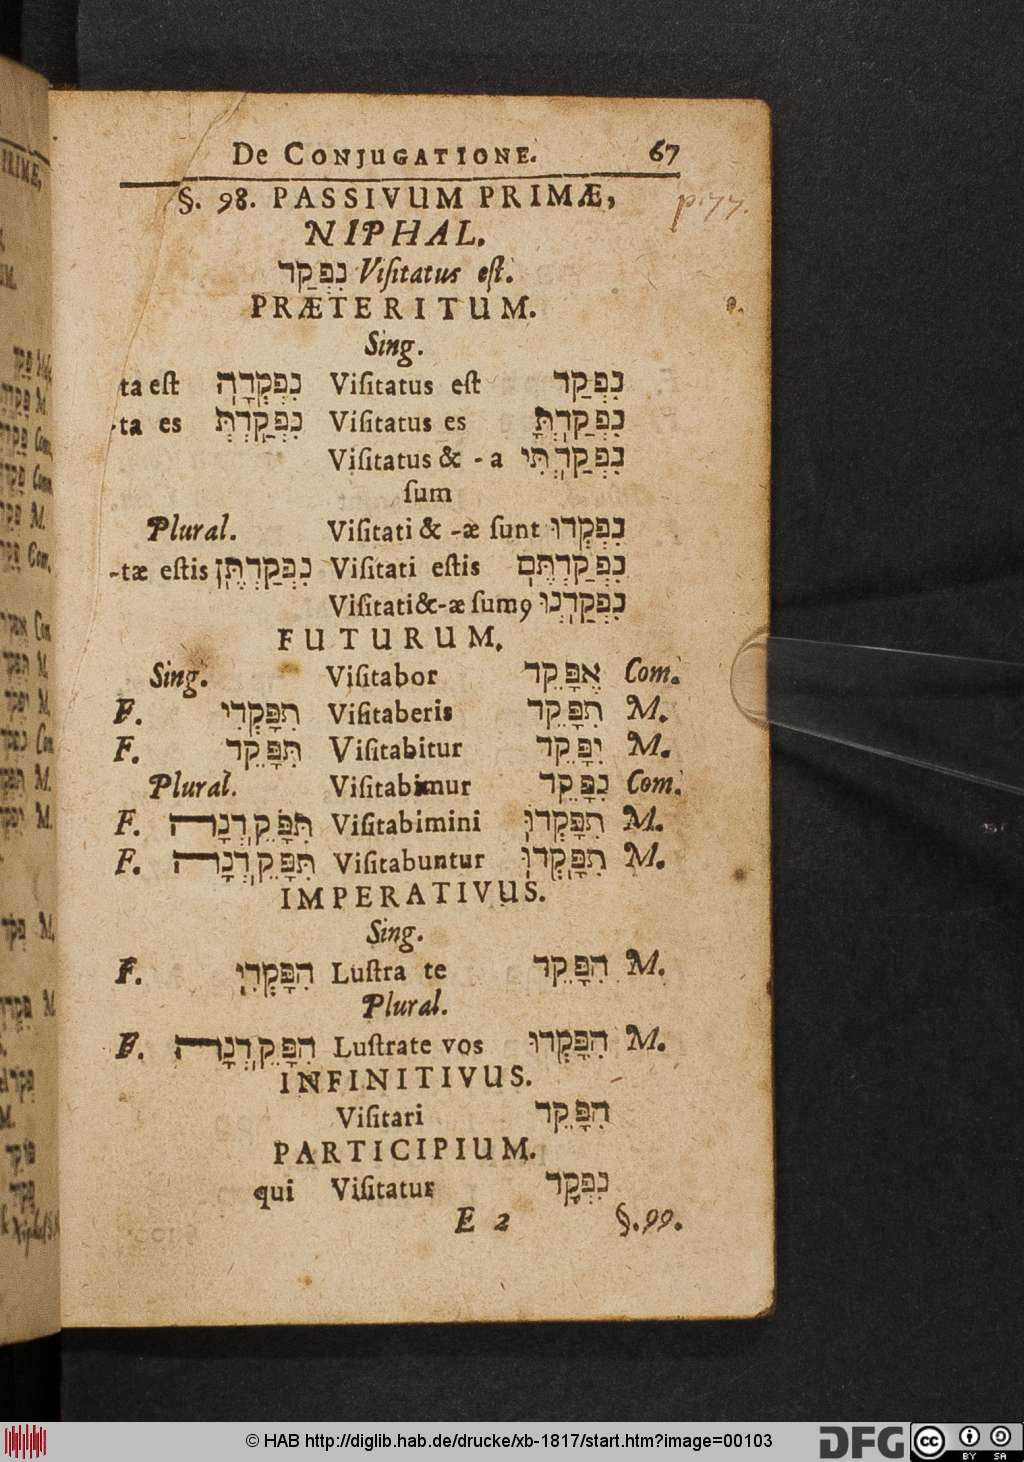 De CONJUGATIONE. 67
§. 98. PASSIVUM PRIMÆ,
p. 77.
NIPHAL.
נִפְקַד Viſitatus eſt.
PRÆTERITUM.
Sing.
ta eſt נִפְקְדָה Viſitatus eſt נִפְקַד
-ta es נִפְקַדְתְּ Viſitatus es נִפְקַדְתָּ
Viſitatus & -a נִפְקַדְתִּי
ſum
Plural. Viſitati & -æ ſunt נִפְקְדוּ
-tæ eſtis נִפְקַדְתֶּן Viſitati eſtis נִפְקַדְתֶּם
Viſitati&-æ ſumꝰ נִפְקַדְנוּ
FUTURUM.
Sing. Viſitabor אֶפָּקֵד Com.
F. תִּפָּקְדִי Viſitaberis תִּפָּקֵד M.
F. תִּפָּקֵד Viſitabitur יִפָּקֵד M.
Plural. Viſitabimur נִפָּקֵד Com.
F. תִּפָּקֵדְנָה Viſitabimini תִּפָּקְדוּ M.
F. תִּפָּקֵדְנָה Viſitabuntur תִּפָּקְדוּ M.
IMPERATIVUS.
Sing.
F. הִפָּקְדִי Luſtra te הִפָּקֵד M.
Plural.
F. הִפָּקֵדְנָה Luſtrate vos הִפָּקְדוּ M.
INFINITIVUS.
Viſitari הִפָּקֵד
PARTICIPIUM.
qui Viſitatur נִפְקָד
E 2 §. 99.
© HAB http://diglib.hab.de/drucke/xb-1817/start.htm?image=00103
DFG cc BY SA